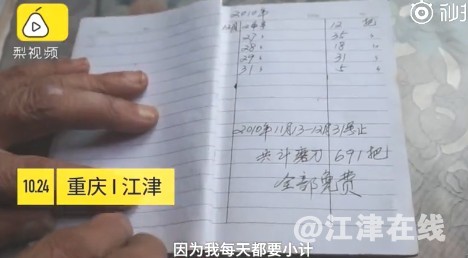 梨视频
秒拍
2010年
12月 12 把
27 〃 35 〃
28 〃 18 〃
29 〃 31 〃
31 〃 5 〃
2010年11月13-12月31日止
共计磨刀 691把
全部免费
10.24 重庆 | 江津
@江津在线
因为我每天都要小计